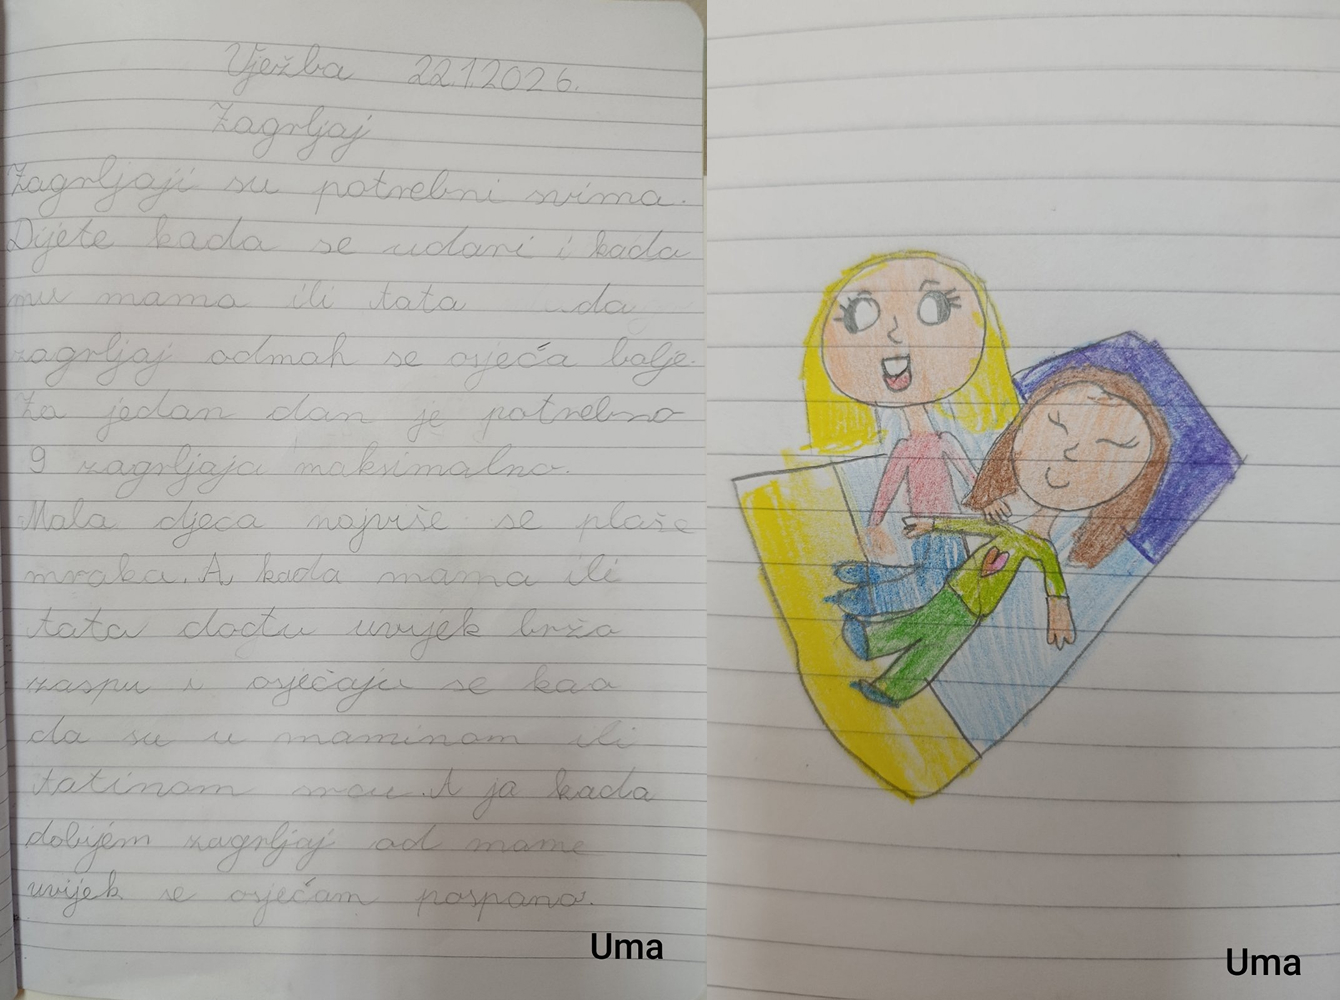 Vježba 22.1.2026.
Zagrljaj
Zagrljaji su potrebni svima.
Dijete kada se udari i kada
mu mama ili tata da
zagrljaj odmah se osjeća bolje.
Za jedan dan je potrebno
9 zagrljaja maksimalno.
Mala djeca najviše se plaše
mraka. A kada mama ili
tata dođu uvijek brzo
zaspu i osjećaju se kao
da su u maminom ili
tatinom srcu. A ja kada
dobijem zagrljaj od mame
uvijek se osjećam pospano.
Uma
Uma